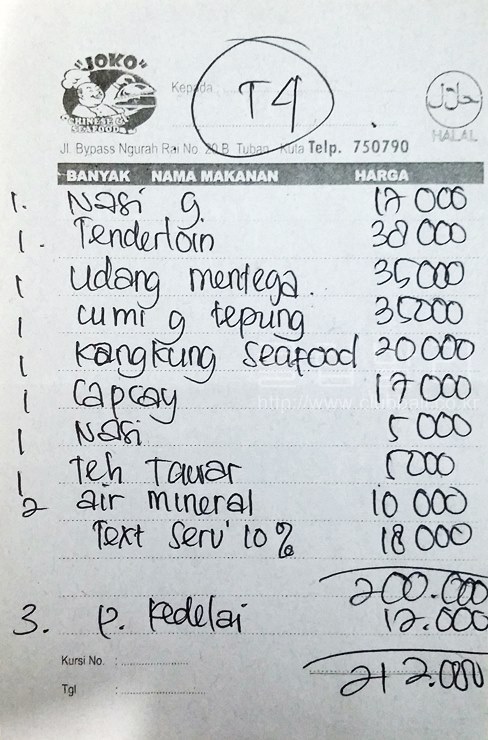 "JOKO"
CHINESE &
SEAFOOD
Kepada :
T4
حلال
HALAL
Jl. Bypass Ngurah Rai No. 20 B Tuban - Kuta Telp. 750790
BANYAK NAMA MAKANAN HARGA
1. Nasi g. 17 000
1. Tenderloin 38 000
1 udang mentega. 35000
1 cumi g tepung 35000
1 Kangkung seafood 20 000
1 Capcay 17 000
1 Nasi 5 000
1 Teh Tawar 5000
2 air mineral 10 000
Text Serv' 10% 18 000
200.000
3. P. Kedelai 12.000
Kursi No. :
212.000
Tgl :